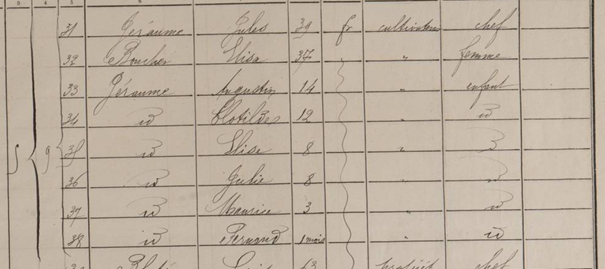 31 Géraume Jules 39 fr cultivateur chef
32 Boucher Elisa 37 " femme
33 Géraume Augustin 14 " enfant
34 id Clotildes 12 " id
35 id Elise 8 " id
36 id Julie 8 " id
5 9 37 id Maurice 3 " id
38 id Fernand 1 mois " id
chef